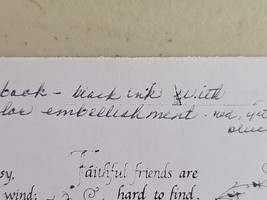 book - black ink with
lor embellishment - red,
blue
sy,
Faithful friends are
wind;
hard to find.